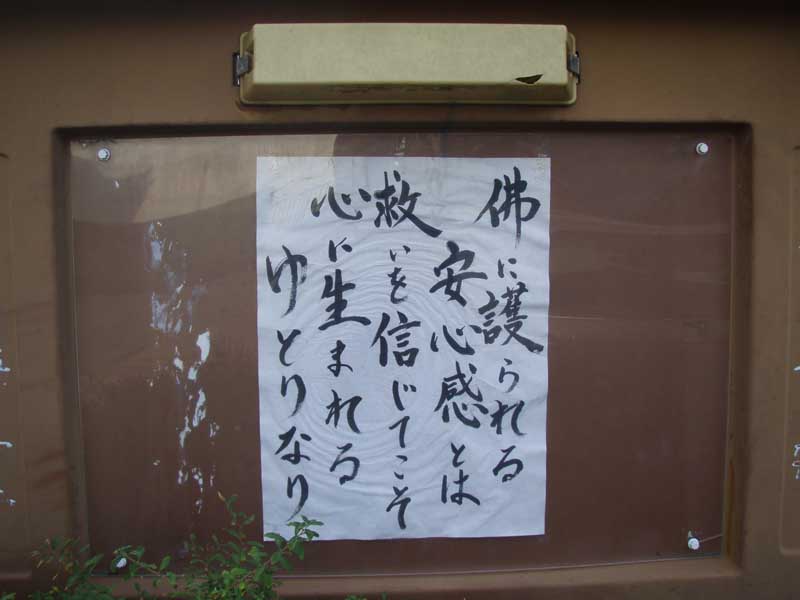 佛に護られる
安心感とは
救いを信じてこそ
心に生まれる
ゆとりなり